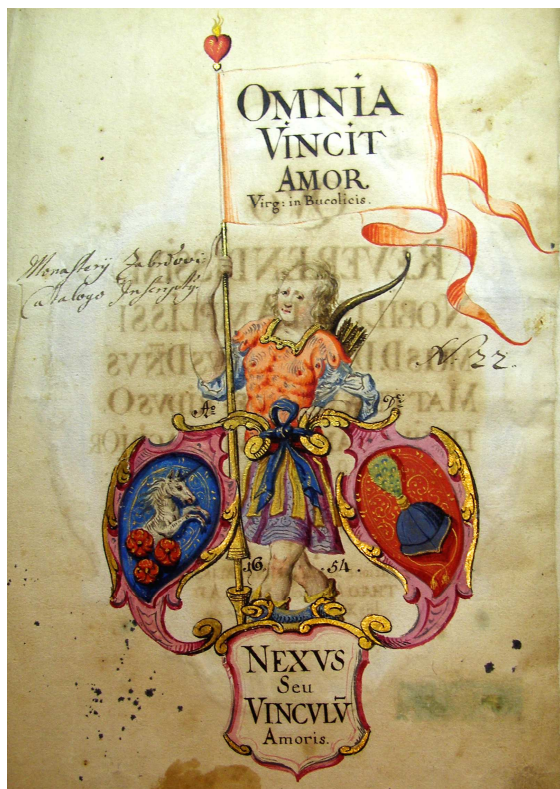 OMNIA
VINCIT
AMOR.
Virg: in Bucolicis.
Monasterij Zabrdovic:
Catalogo Inscriptq
N. 22.
Ao. Dni:
16 54.
NEXVS
Seu
VINCVLV̄
Amoris.